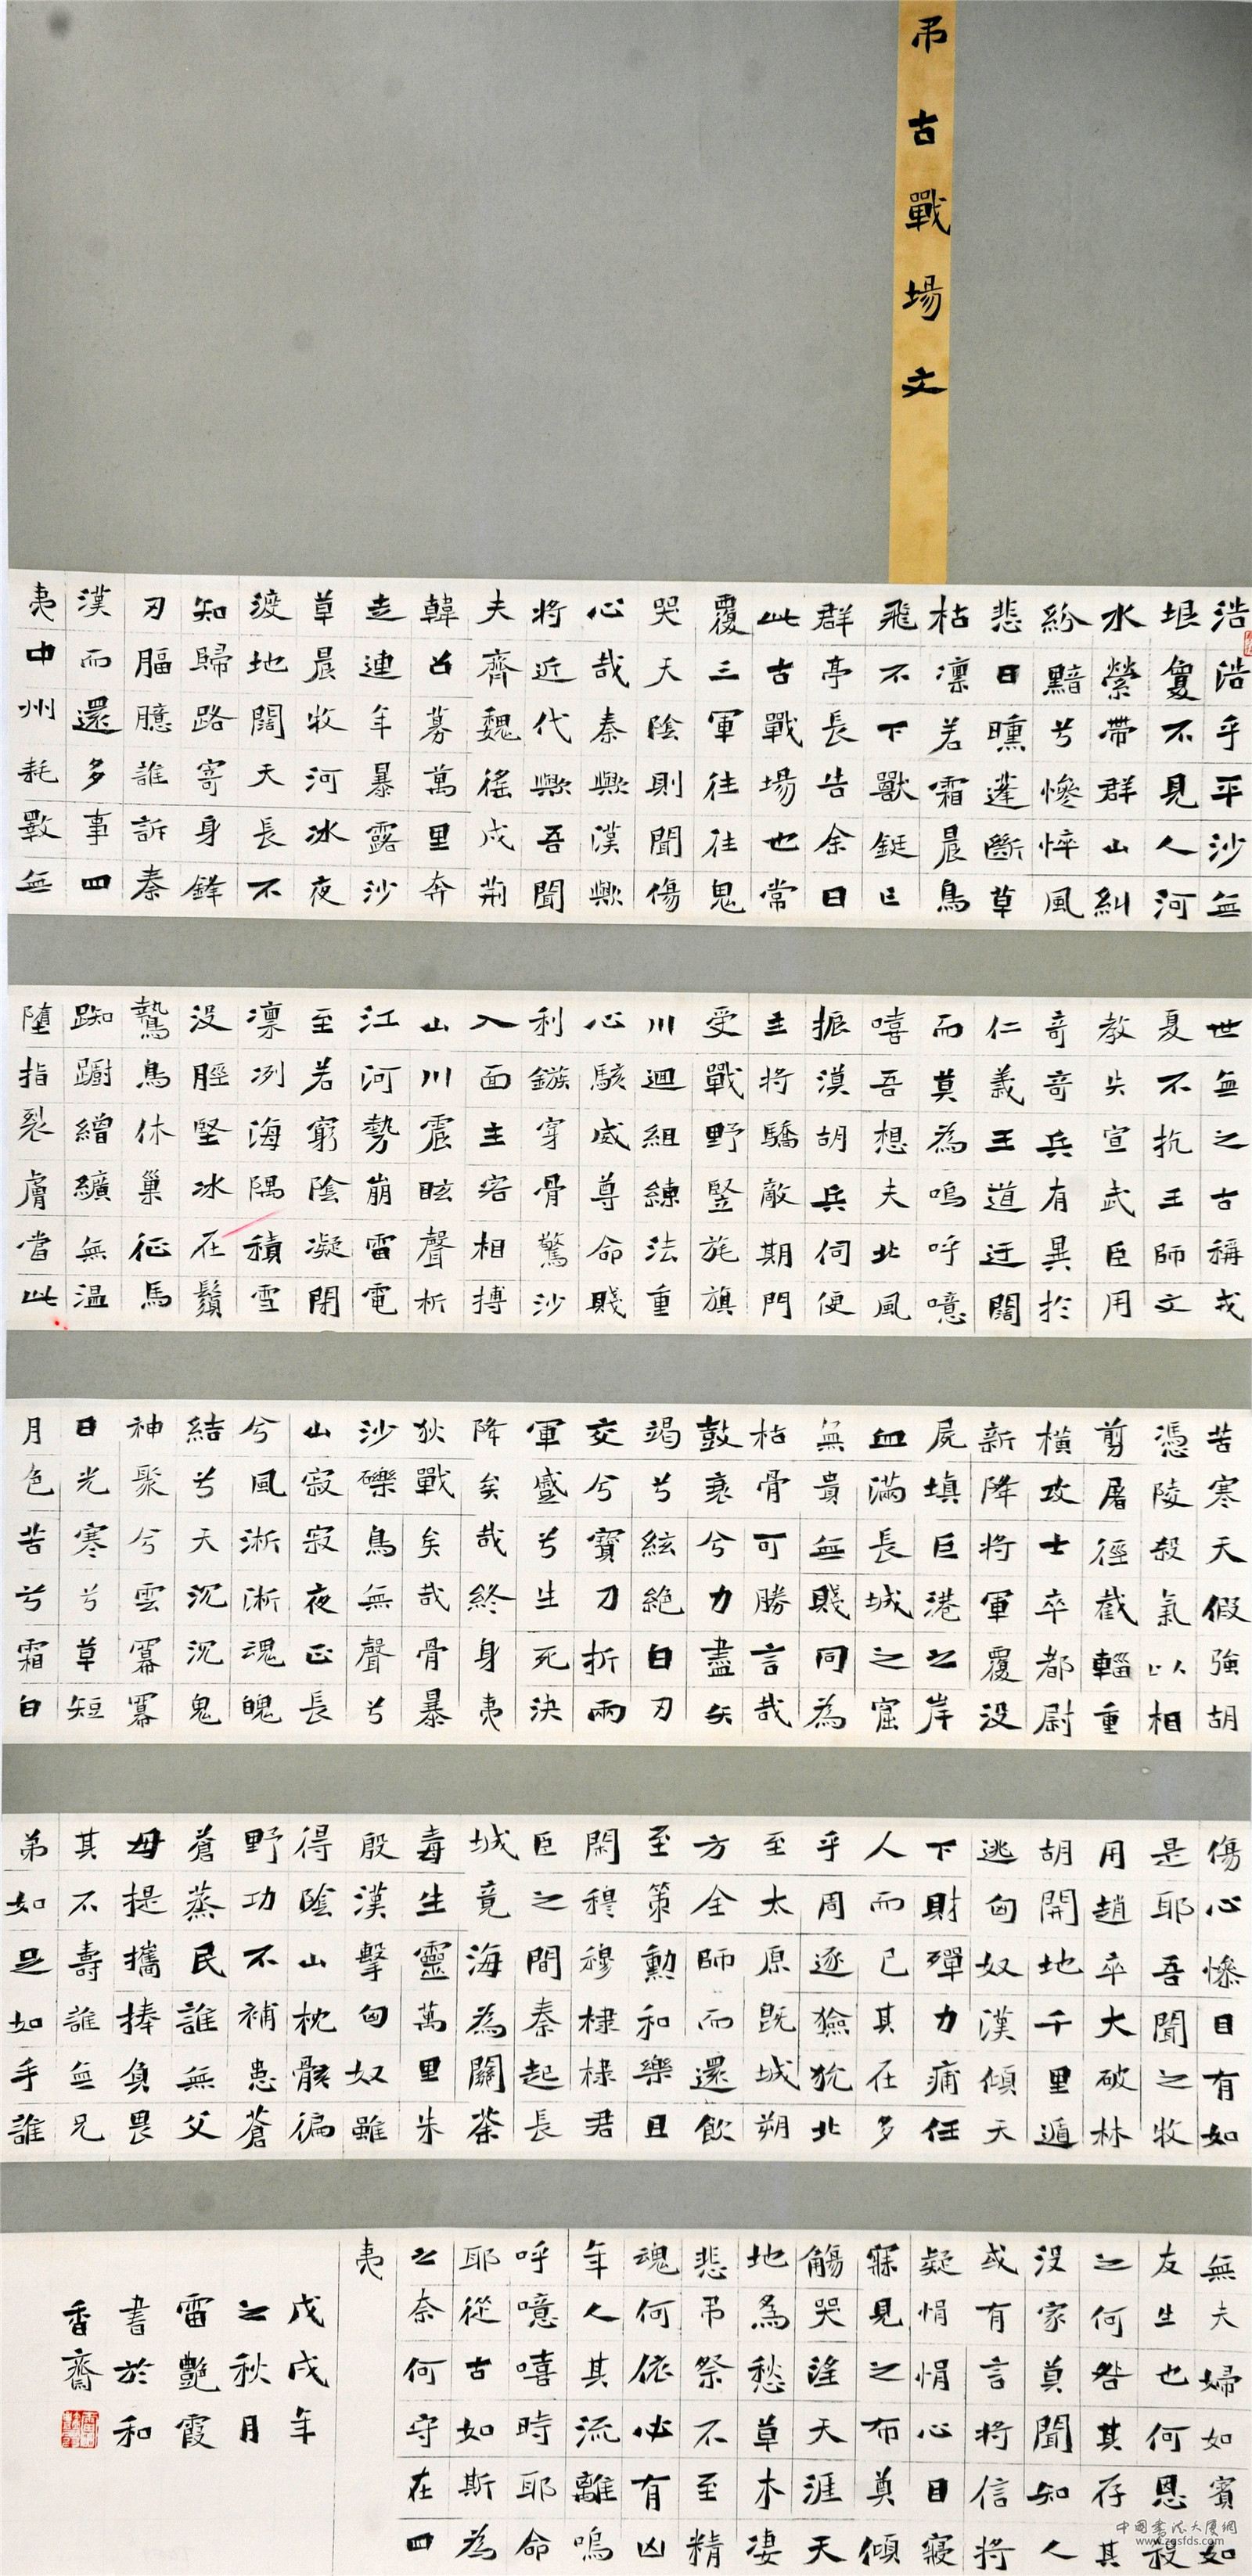 吊古戰場文
浩浩乎平沙無
垠敻不見人河
水縈帶群山糾
紛黯兮慘悴風
悲日曛蓬斷草
枯凜若霜晨鳥
飛不下獸鋌亡
群亭長告余曰
此古戰場也常
覆三軍往往鬼
哭天陰則聞傷
心哉秦歟漢歟
將近代歟吾聞
夫齊魏徭戍荊
韓召募萬里奔
走連年暴露沙
草晨牧河冰夜
渡地闊天長不
知歸路寄身鋒
刃腷臆誰訴秦
漢而還多事四
夷中州耗斁無
世無之古稱戎
夏不抗王師文
教失宣武臣用
奇奇兵有異於
仁義王道迂闊
而莫為嗚呼噫
嘻吾想夫北風
振漠胡兵伺便
主將驕敵期門
受戰野豎旄旗
川迴組練法重
心駭威尊命賤
利鏃穿骨驚沙
入面主客相搏
山川震眩聲析
江河勢崩雷電
至若窮陰凝閉
凛冽海隅積雪
没脛堅冰在鬚
鷙鳥休巢征馬
踟躕繒纊無温
墮指裂膚當此
苦寒天假強胡
憑陵殺氣以相
剪屠徑截輜重
橫攻士卒都尉
新降將軍覆没
屍填巨港之岸
血滿長城之窟
無貴無賤同為
枯骨可勝言哉
鼓衰兮力盡矣
竭兮絃絕白刃
交兮寶刀折兩
軍盛兮生死決
降矣哉終身夷
狄戰矣哉骨暴
沙礫鳥無聲兮
山寂寂夜正長
兮風淅淅魂魄
結兮天沉沉鬼
神聚兮雲冪冪
日光寒兮草短
月色苦兮霜白
傷心慘目有如
是耶吾聞之牧
用趙卒大破林
胡開地千里遁
逃匈奴漢傾天
下財殫力痡任
人而已其在多
乎周逐獫狁北
至太原既城朔
方全師而還飲
至策勳和樂且
閑穆穆棣棣君
巨之間秦起長
城竟海為關荼
毒生靈萬里朱
殷漢擊匈奴雖
得陰山枕骸徧
野功不補患蒼
蒼蒸民誰無父
母提攜捧負畏
其不壽誰無兄
弟如足如手誰
無夫婦如賓如
友生也何恩殺
之何咎其存其
没家莫聞知人
或有言將信將
疑悁悁心目寢
寐見之布奠傾
觴哭淫天涯天
地為愁草木淒
悲弔祭不至精
魂何依必有凶
年人其流離嗚
呼噫嘻時耶命
耶從古如斯為
之奈何守在四
夷
戊戌年
之秋月
雷艷霞
書於和
香齋
中國書法大廈網
www.zgsfds.com